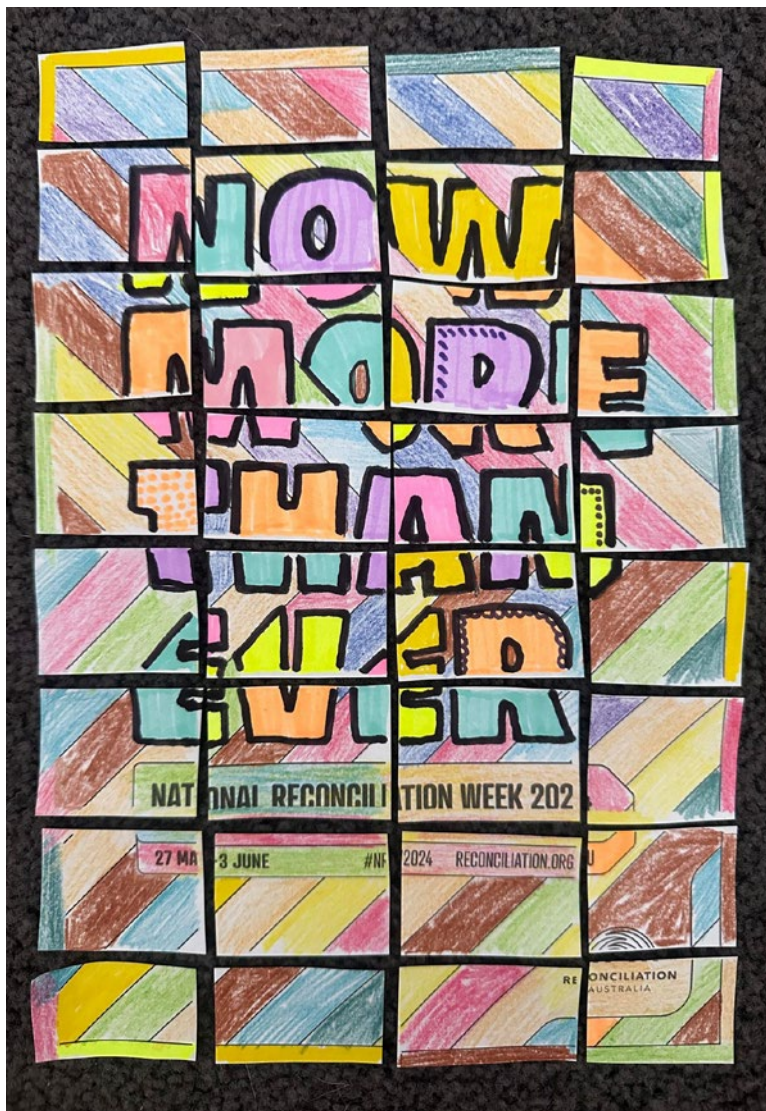 NOW
MORE
THAN
EVER
NATIONAL RECONCILIATION WEEK 202
27 MA -3 JUNE #NR 2024 RECONCILIATION.ORG U
RECONCILIATION
AUSTRALIA